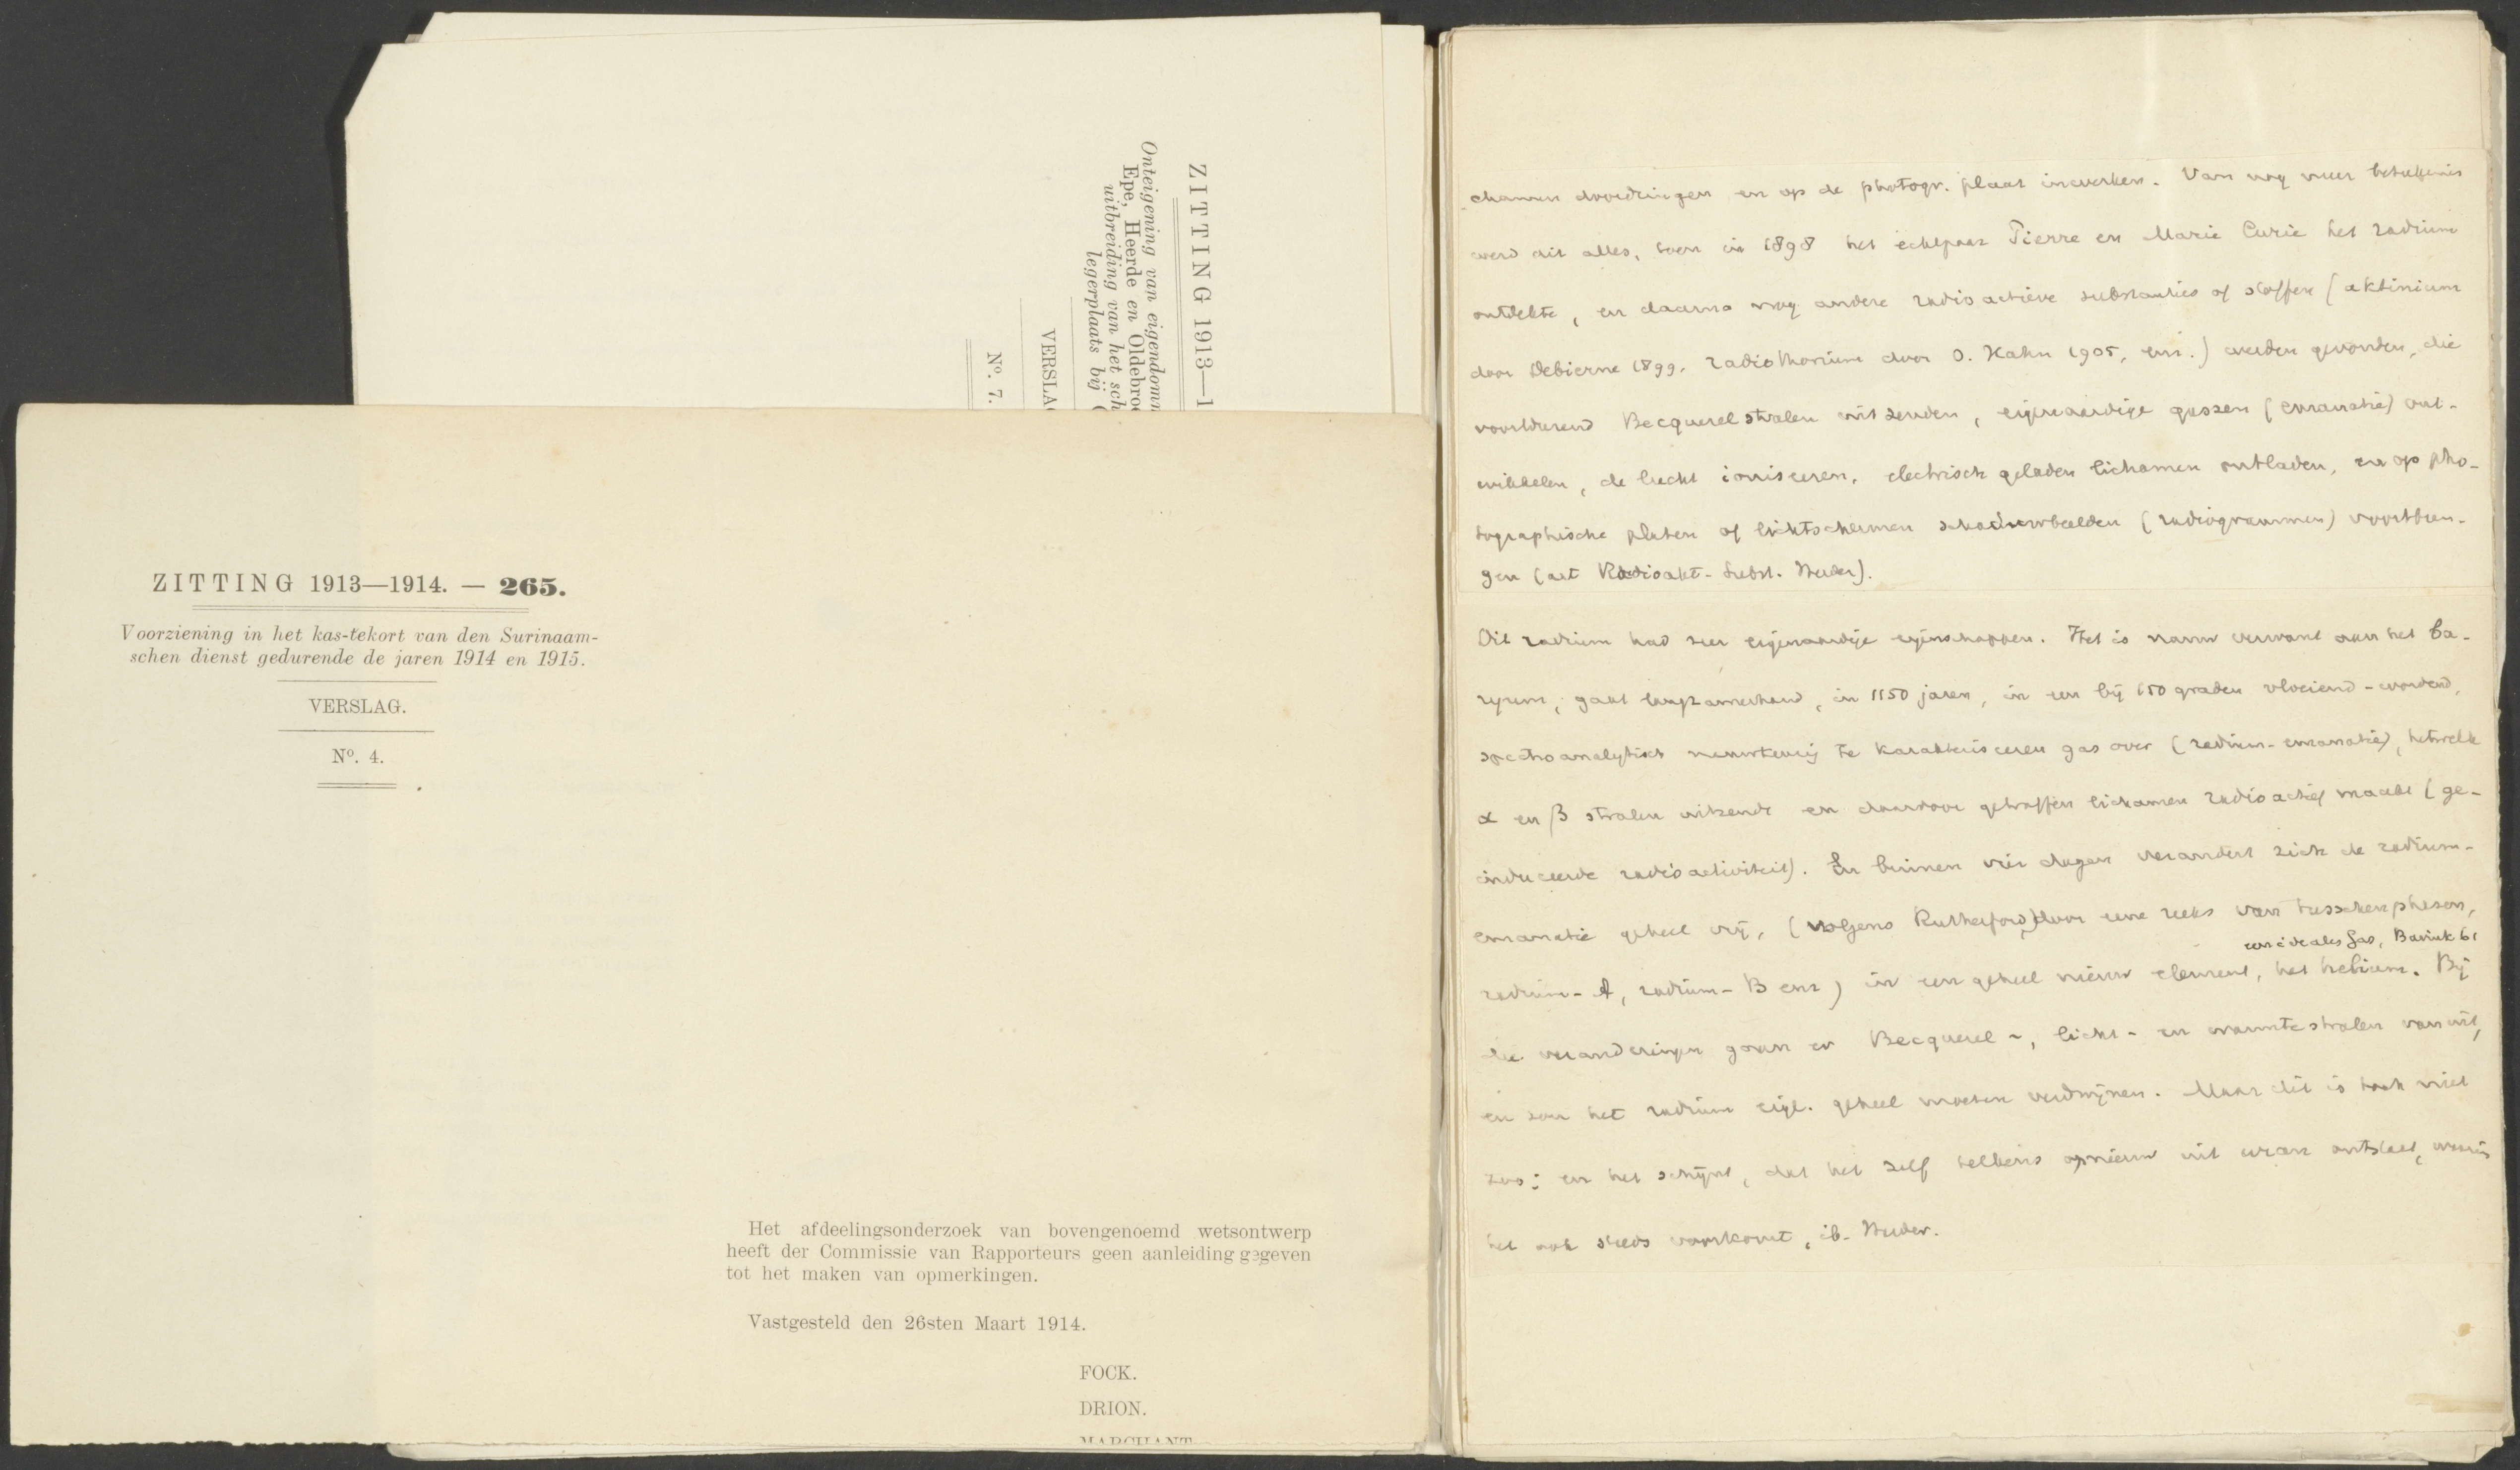 ZITTING 1913—1
Onteigening van eigendomm
Epe, Heerde en Oldebroe
uitbreiding van het sch
legerplaats bij (
VERSLAG
Nº. 7.
ZITTING 1913—1914. — 265.
Voorziening in het kas-tekort van den Surinaam-
schen dienst gedurende de jaren 1914 en 1915.
VERSLAG.
Nº. 4.
Het afdeelingsonderzoek van bovengenoemd wetsontwerp
heeft der Commissie van Rapporteurs geen aanleiding gegeven
tot het maken van opmerkingen.
Vastgesteld den 26sten Maart 1914.
FOCK.
DRION.
MARCHANT
chamen doordringen en op de photogr. plaat inwerken. Van nog meer beteekenis
werd dit alles, toen in 1898 het echtpaar Pierre en Marie Curie het radium
ontdekte, en daarna nog andere radioactieve substanties of stoffen (aktinium
door Debierne 1899, radiothorium door O. Hahn 1905, enz.) werden gevonden, die
voortdurend Becquerelstralen uitzenden, eigenaardige gassen (emanatie) ont-
wikkelen, de lucht ioniseeren, electrisch geladen lichamen ontladen, en op pho-
tographische platen of lichtschermen schaduwbeelden (radiogrammen) voortbren-
gen (art Radioakt. Subst. Meder).
Dit radium had zeer eigenaardige eigenschappen. Het is nauw verwant aan het ba-
ryum, gaat langzamerhand, in 1150 jaren, in een bij 150 graden vloeiend-wordend,
spectroanalytisch nauwkeurig te karakteriseeren gas over (radium-emanatie), hetwelk
α en β stralen uitzendt en daardoor getroffen lichamen radioactief maakt (ge-
induceerde radioactiviteit). En binnen vier dagen verandert zich de radium-
emanatie geheel vrij, (volgens Rutherford) door eene reeks van tusschenphasen,
een ideales Gas, Bavink 61
radium-A, radium-B enz) in een geheel nieuw element, het helium. Bij
die veranderingen gaan er Becquerel-, licht- en warmtestralen van uit,
en zou het radium eigl. geheel moeten verdwijnen. Maar dit is toch niet
zoo; en het schijnt, dat het zelf telkens opnieuw uit uran ontstaat, waarin
het ook steeds voorkomt, ib. Meder.